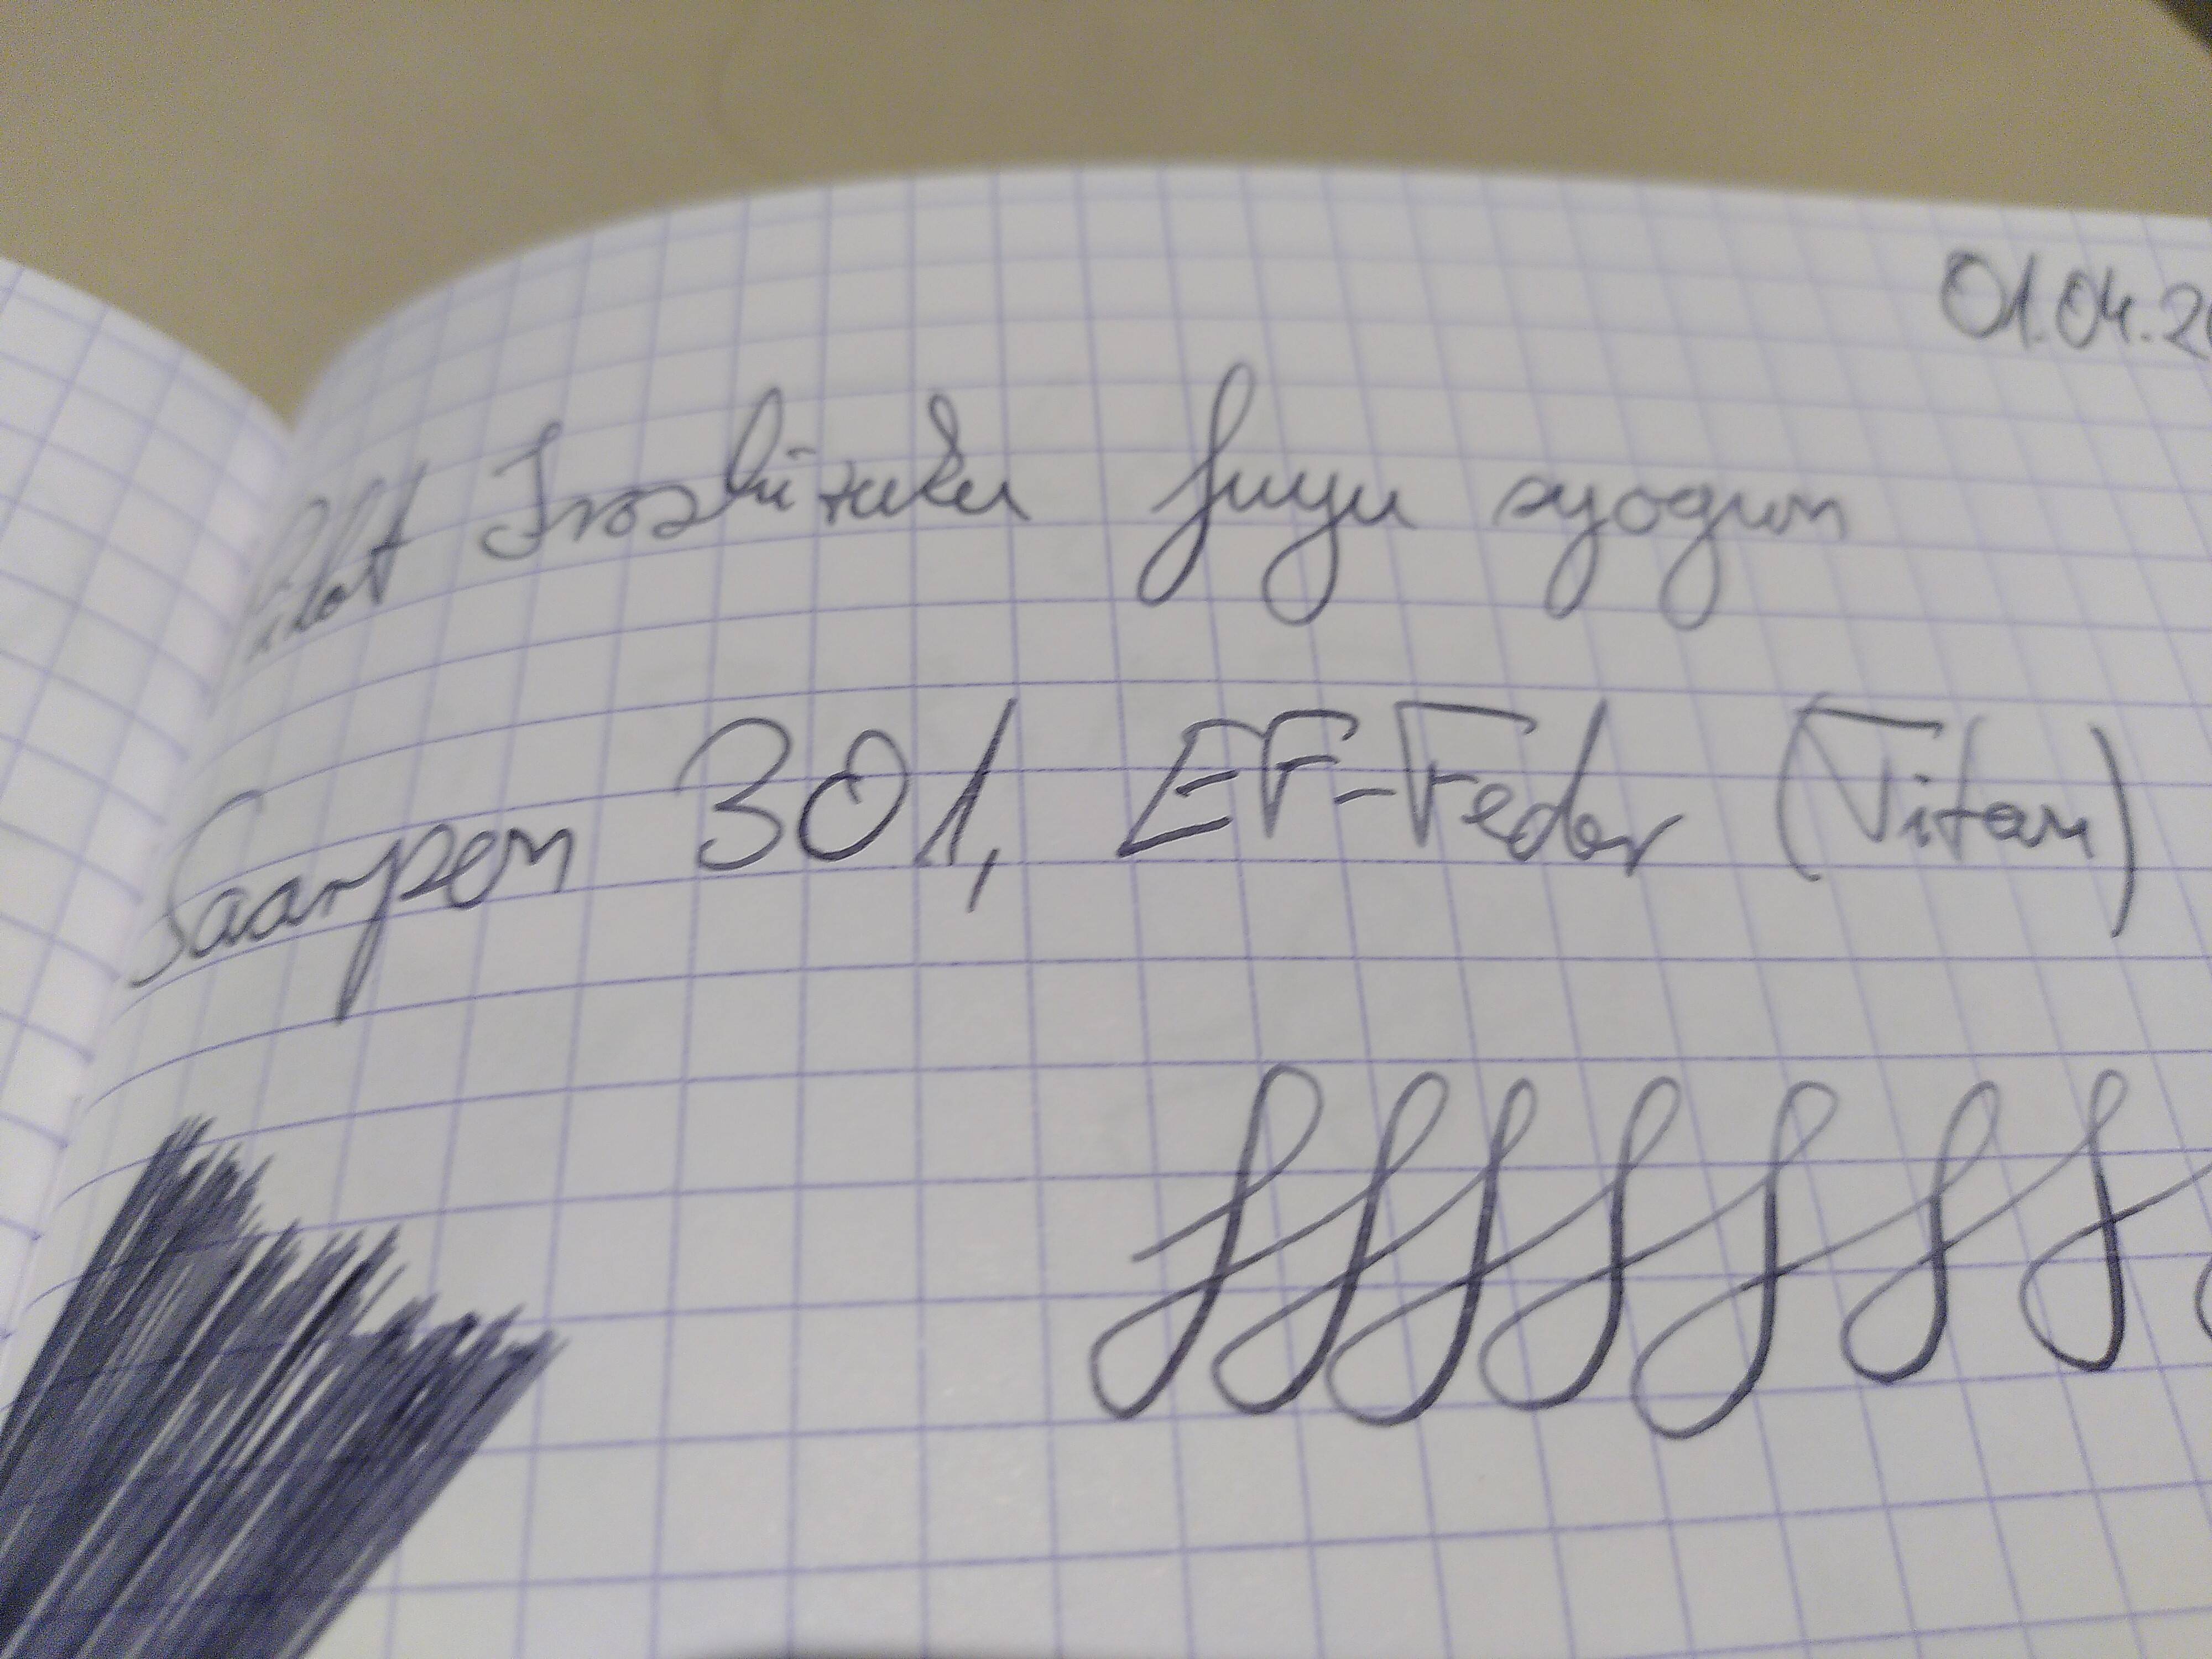 01.04.20
Pilot Iroshizuku fuyu syogun
Saarpen 301, EF-Feder (Titan)
fffffff